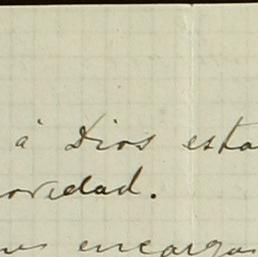 á Dios esta
ovedad.
encargo